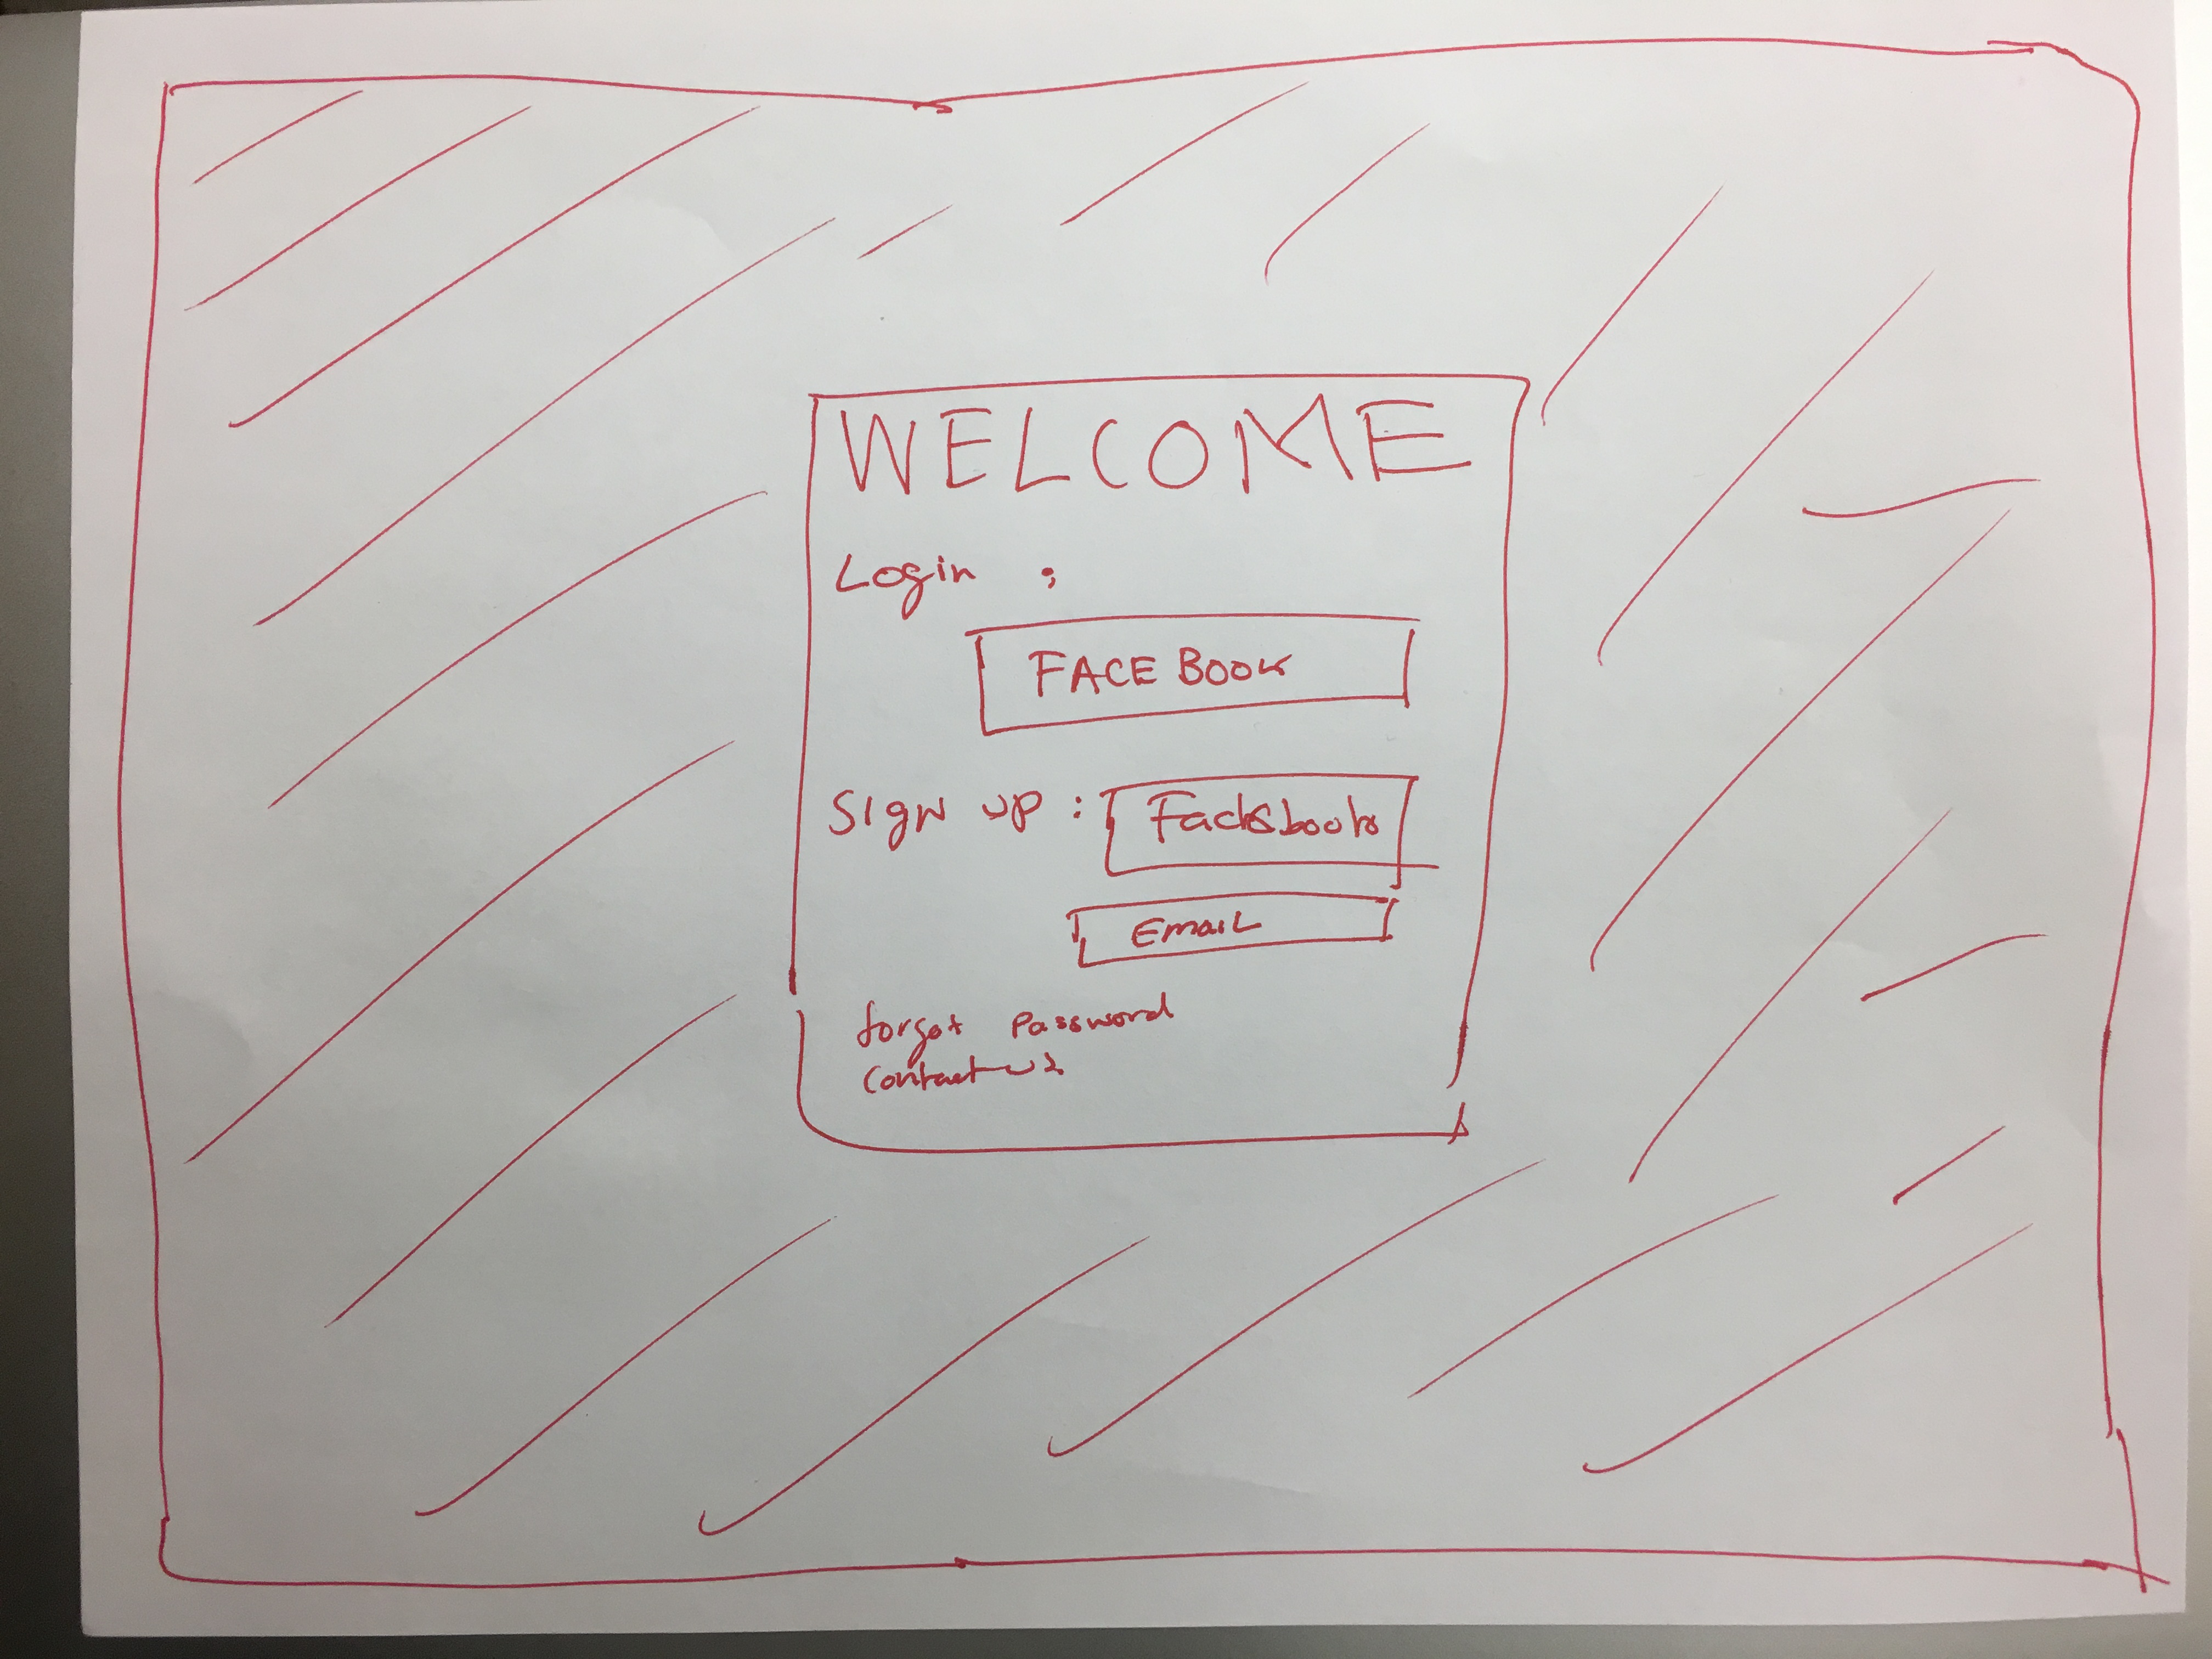 WELCOME
Login :
FACEBOOK
SIGN UP :
Facebook
EMAIL
forgot password
contact us